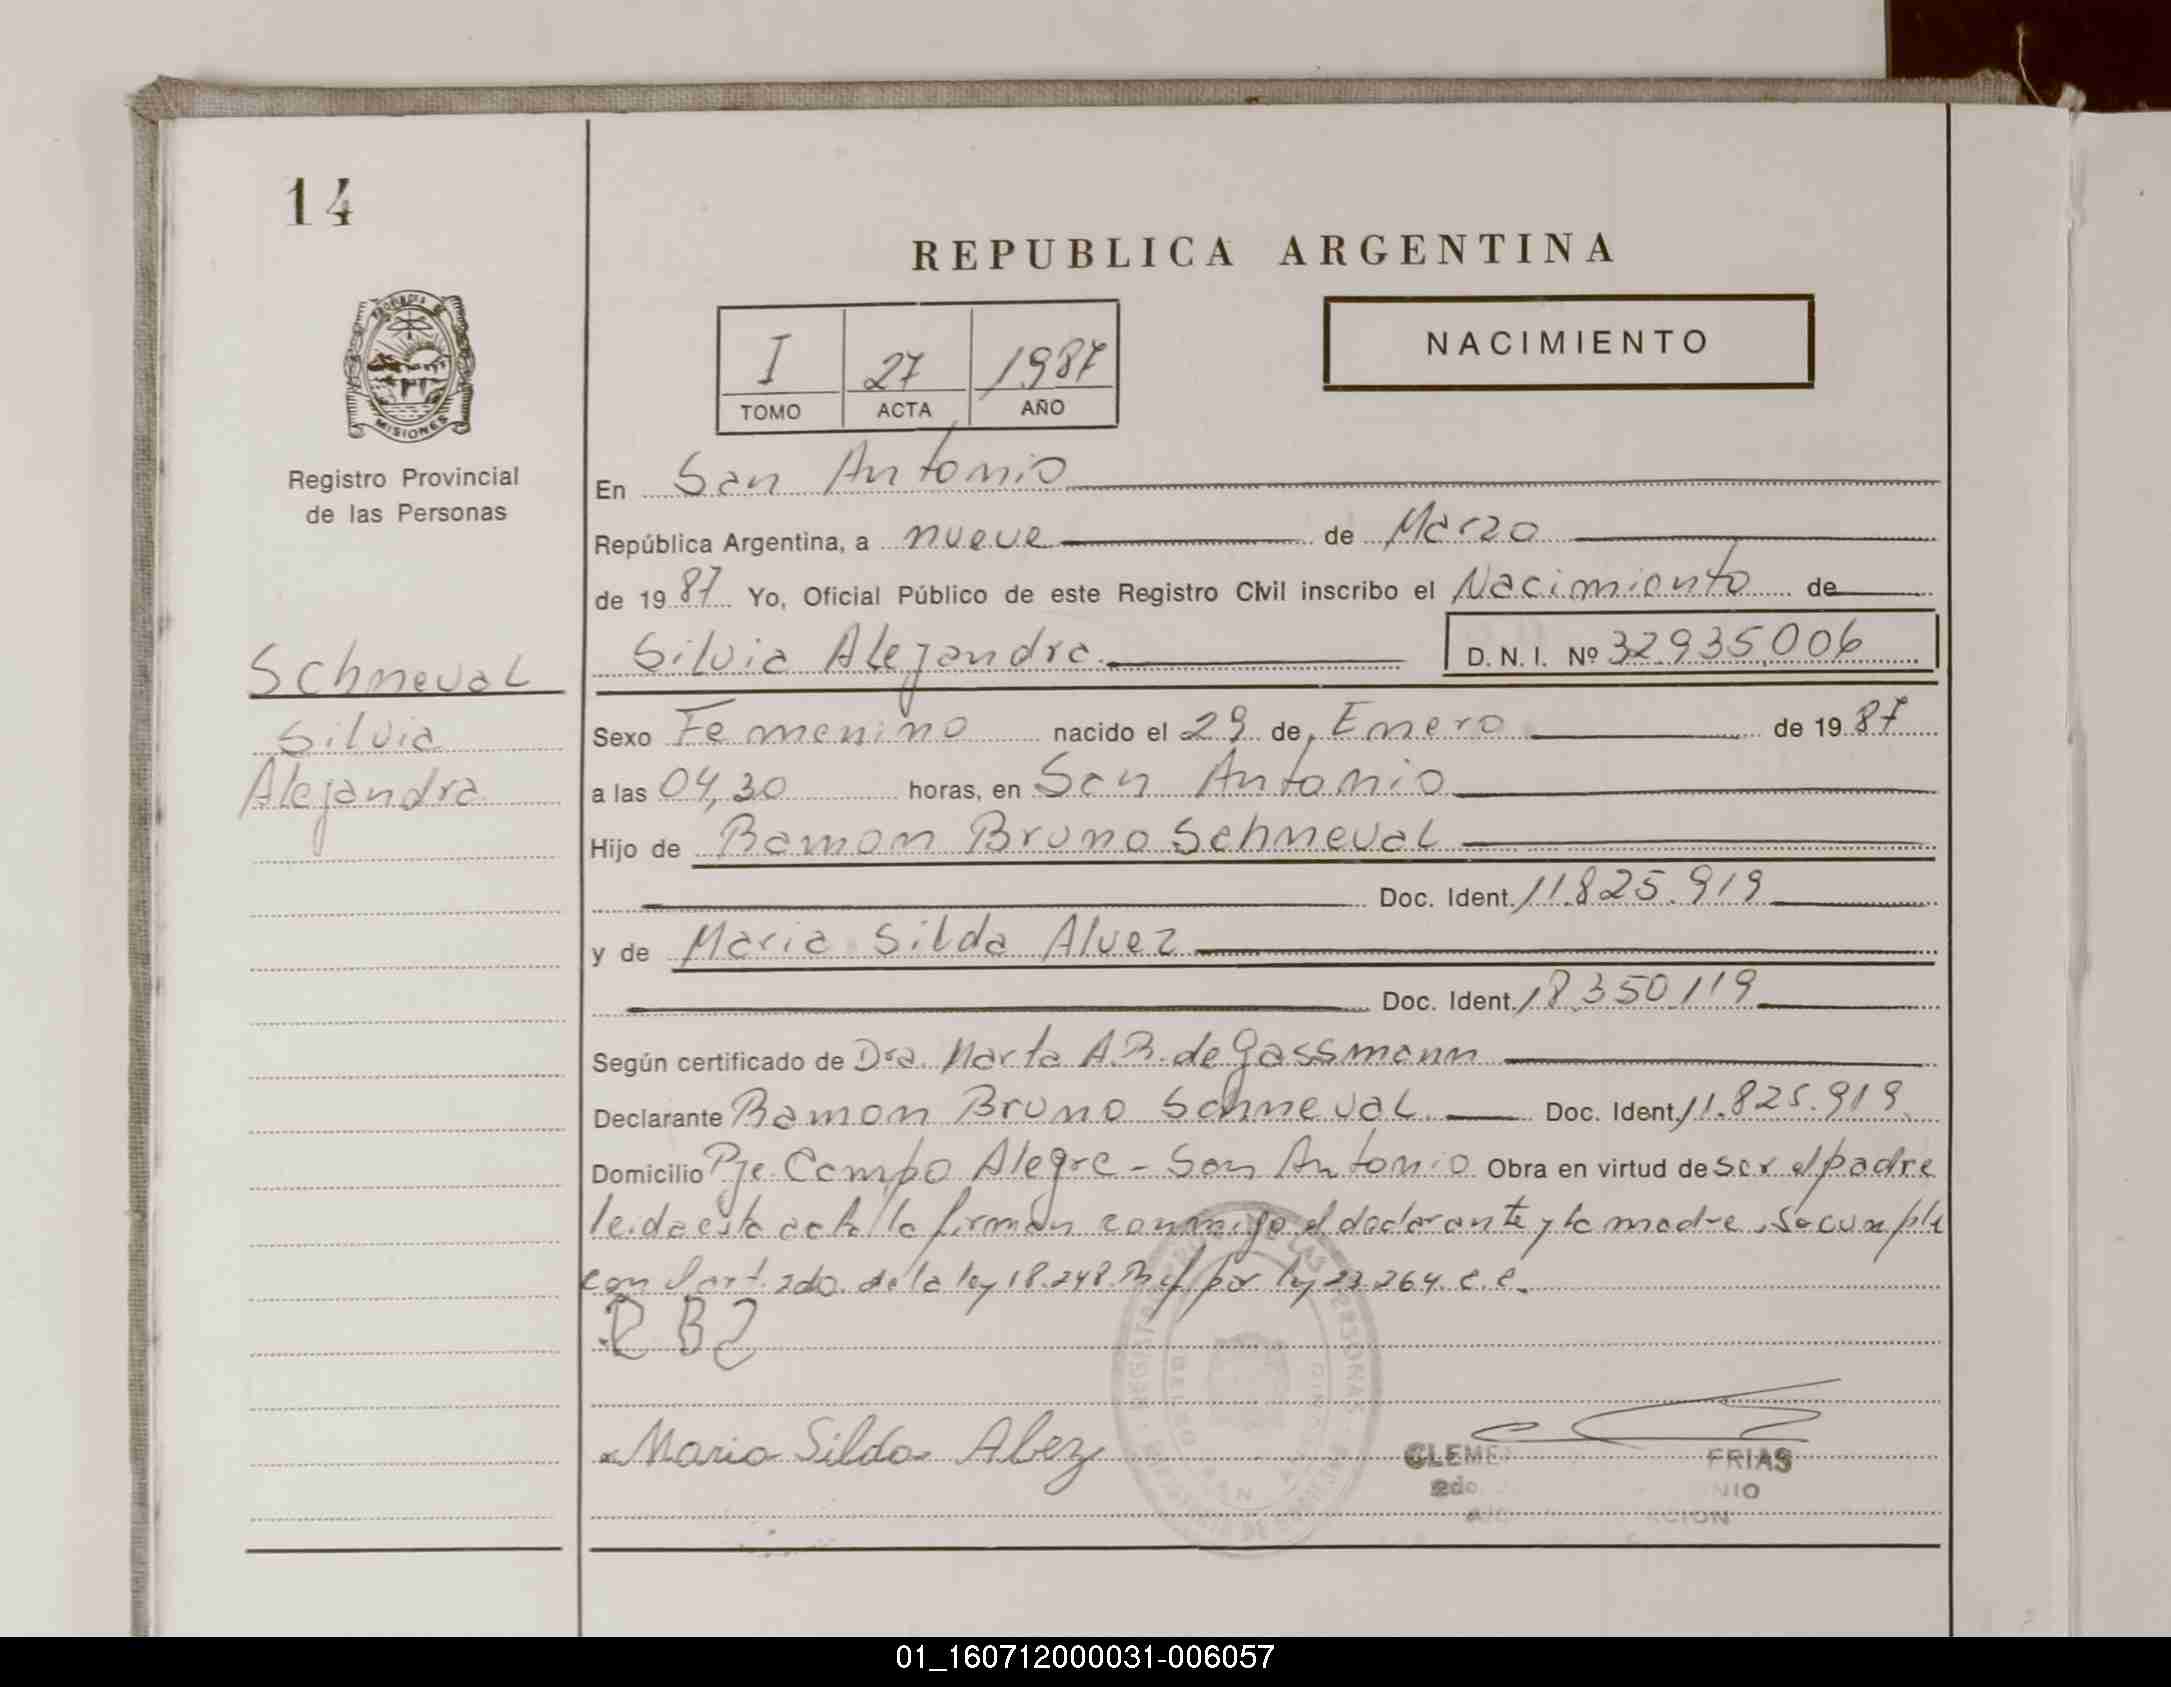 14
REPUBLICA ARGENTINA
NACIMIENTO
I 27 1987
TOMO ACTA AÑO
MISIONES
Registro Provincial
de las Personas
Schneval
Silvia
Alejandra
En San Antonio
República Argentina, a nueve de Marzo
de 1987 Yo, Oficial Público de este Registro Civil inscribo el Nacimiento de
Silvia Alejandra D. N. I. Nº 32935006
Sexo Femenino nacido el 29 de Enero de 1987
a las 04,30 horas, en San Antonio
Hijo de Ramon Bruno Schneval
Doc. Ident. 11.825.919
y de Maria Silda Alvez
Doc. Ident. 18.350.119
Según certificado de Dra. Marta A.R. de Gassmann
Declarante Ramon Bruno Schneval Doc. Ident. 11.825.919
Domicilio Pje. Campo Alegre - San Antonio Obra en virtud de ser el padre
leida esta acta la firman conmigo el declarante y la madre, se cumple
con el art. 2do. de la ley 18.248 Mof por ley 23.264. c.c.
Maria Silda Albez
CLEME FRIAS
2do. NIO
ACION
01_160712000031-006057